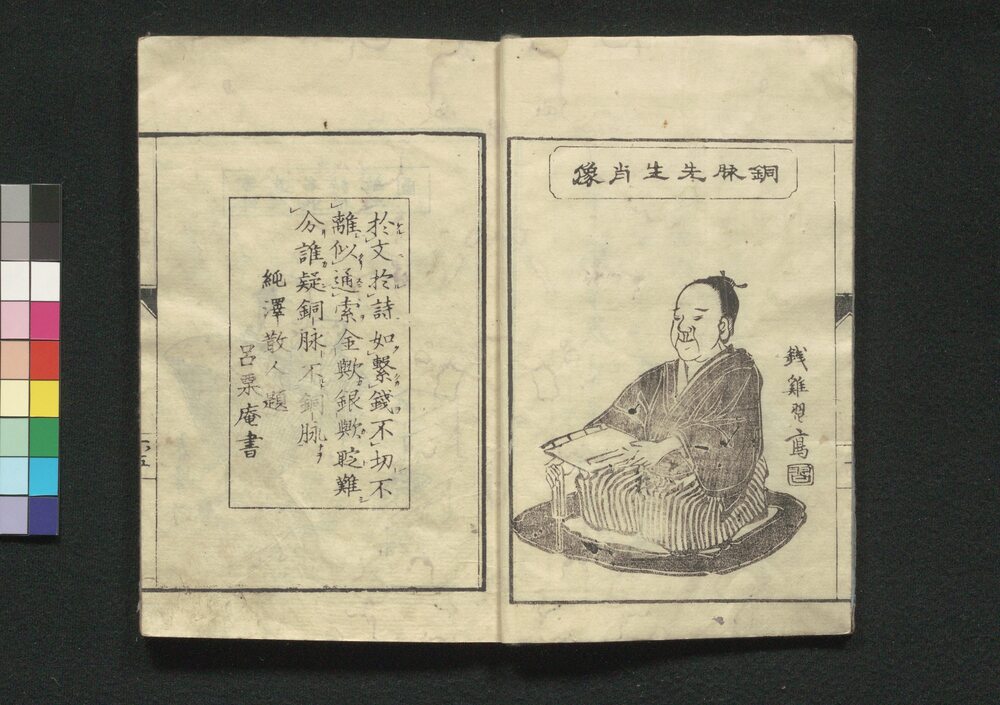 銅脉先生肖像
錢雞寫
於文於詩如繫錢不切不
離似通索金歟銀歟眨難
分誰疑銅脉不銅脉
澤散人題
呂庵書